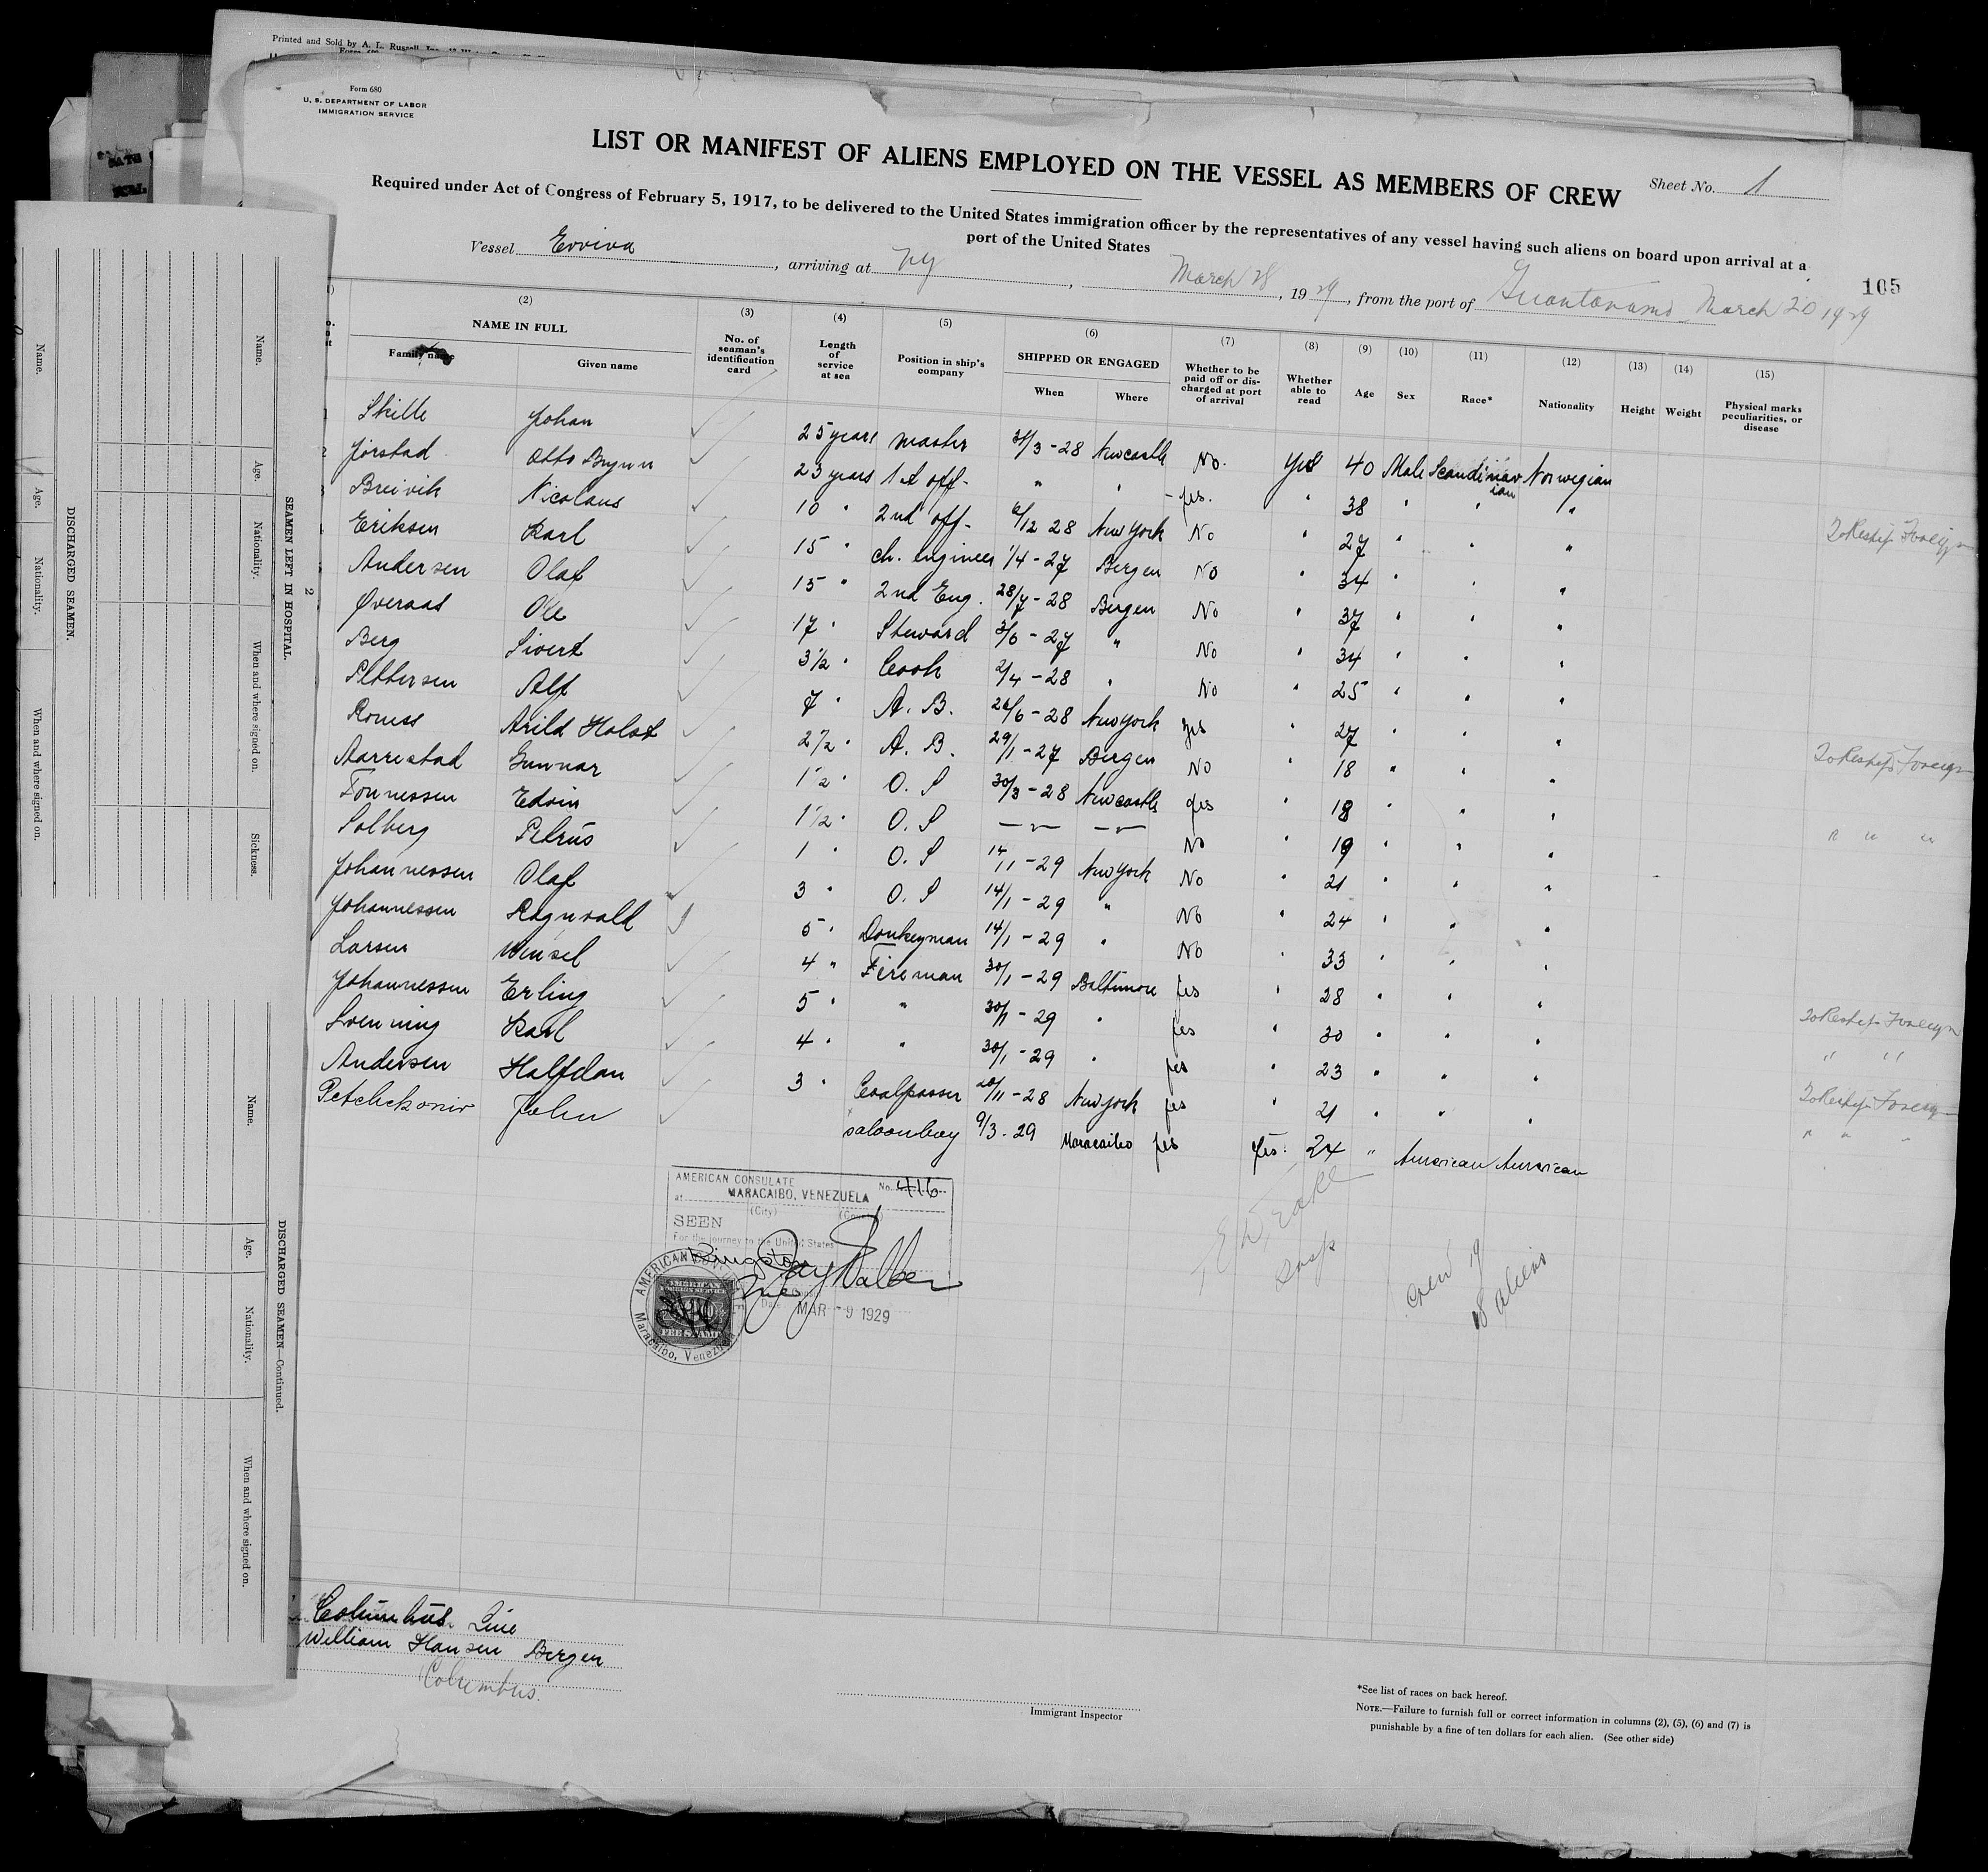 Printed and Sold by A. L. Russell, Inc.
Form 680
U. S. DEPARTMENT OF LABOR
IMMIGRATION SERVICE
LIST OR MANIFEST OF ALIENS EMPLOYED ON THE VESSEL AS MEMBERS OF CREW
Sheet No. 1
Required under Act of Congress of February 5, 1917, to be delivered to the United States immigration officer by the representatives of any vessel having such aliens on board upon arrival at a
port of the United States
Vessel Erviva, arriving at NY, March 28, 1929, from the port of Guantanamo March 20 1929
105
(2) (3) (4) (5) (6) (7) (8) (9) (10) (11) (12) (13) (14) (15)
NAME IN FULL
Family name Given name
No. of seaman's identification card
Length of service at sea
Position in ship's company
SHIPPED OR ENGAGED
When Where
Whether to be paid off or discharged at port of arrival
Whether able to read
Age Sex Race* Nationality Height Weight
Physical marks peculiarities, or disease
Skille Johan 25 years master 31/3-28 Newcastle No. Yes 40 Male Scandinavian Norwegian
Jørstad Otto Brynn 23 years 1st off- " " - yes. " 38 " " "
Breivik Nicolaus 10 " 2nd off- 6/12 28 New York No " 27 " " " To Reship Foreign
Eriksen Karl 15 " ch. engineer 1/4-27 Bergen No " 34 " " "
Andersen Olaf 15 " 2nd Eng. 28/7-28 Bergen No " 37 " " "
Øveraas Ole 17 " Steward 3/6-27 " No " 34 " " "
Berg Sivert 3 1/2 " Cook 2/4-28 " No " 25 " " "
Pettersen Alf 7 " A. B. 26/6-28 New York yes " 27 " " "
Romss Arild Holst 2 1/2 " A. B. 29/1-27 Bergen No " 18 " " " To Reship Foreign
Aarrestad Gunnar 1 1/2 " O. S 30/3-28 Newcastle yes " 18 " " "
Tønnessen Edvin 1 1/2 " O. S —"— —"— No " 19 " " " " " "
Solberg Petrus 1 " O. S 14/11-29 New York No " 21 " " "
Johannessen Olaf 3 " O. S 14/1-29 " No " 24 " " "
Johannessen Ragnvald 5 " Donkeyman 14/1-29 " No " 33 " " "
Larsen Wensel 4 " Fireman 30/1-29 Baltimore yes " 28 " " "
Johannessen Erling 5 " " 30/1-29 " yes " 30 " " " To Reship Foreign
Svenning Karl 4 " " 30/1-29 " yes " 23 " " " " "
Andersen Halfdan 3 " Coalpasser 20/11-28 New York yes " 21 " " " To Reship Foreign
Petchckonir John saloonboy 9/3.29 Maracaibo yes yes. 24 " American American " " "
AMERICAN CONSULATE No. 416
at MARACAIBO, VENEZUELA
(City) (Country)
SEEN
For the journey to the United States
AMERICAN
Maracaibo, Venezuela
AMERICAN
FEE STAMP
Date MAR -9 1929
Crew 19
18 aliens
Columbus Line
William Hansen Bergen
Columbus.
Immigrant Inspector
*See list of races on back hereof.
NOTE.—Failure to furnish full or correct information in columns (2), (5), (6) and (7) is
punishable by a fine of ten dollars for each alien. (See other side)
SEAMEN LEFT IN HOSPITAL.
Name. Age. Nationality. When and where signed on. Sickness.
2
DISCHARGED SEAMEN.
Name. Age. Nationality. When and where signed on.
DISCHARGED SEAMEN—Continued.
Name. Age. Nationality. When and where signed on.